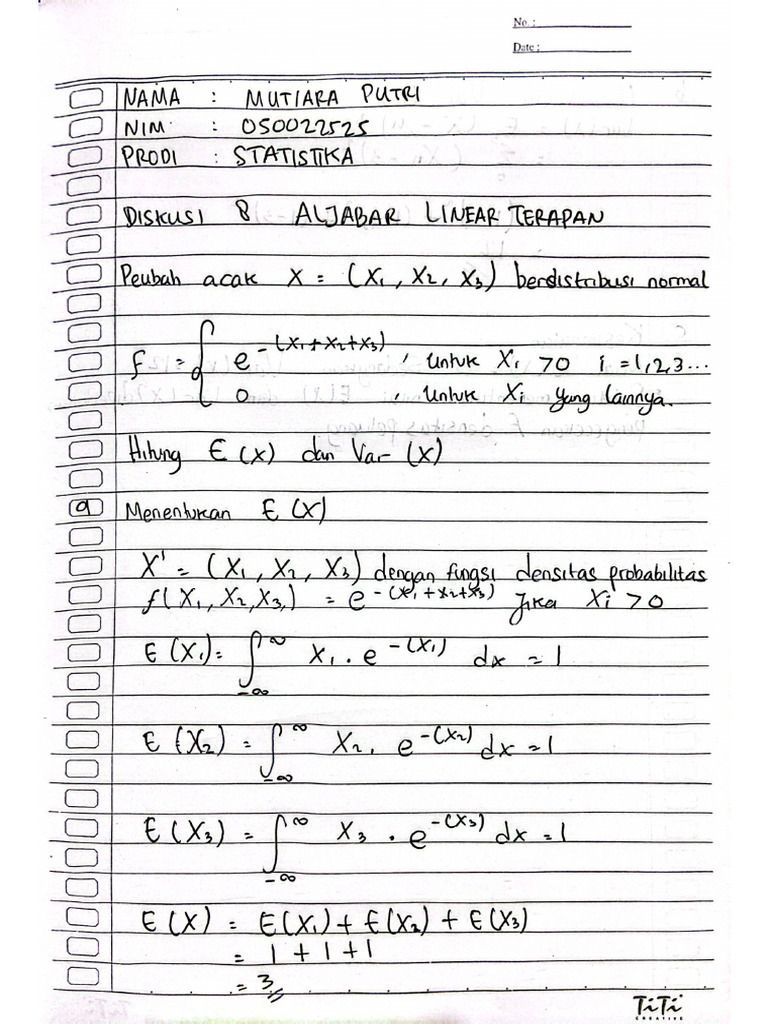 No. :
Date :
NAMA : MUTIARA PUTRI
NIM : 050022525
PRODI : STATISTIKA
DISKUSI 8 ALJABAR LINEAR TERAPAN
Peubah acak X = (X1, X2, X3) berdistribusi normal
f = { e^-(X1+X2+X3) , untuk Xi > 0 i = 1,2,3...
0 , untuk Xi yang lainnya.
Hitung E (X) dan Var (X)
a Menentukan E (X)
X' = (X1, X2, X3) dengan fungsi densitas probabilitas
f(X1, X2, X3,) = e^-(X1+X2+X3) Jika Xi > 0
E (X1) = ∫_-∞^∞ X1 . e^-(X1) dx = 1
E (X2) = ∫_-∞^∞ X2 . e^-(X2) dx = 1
E (X3) = ∫_-∞^∞ X3 . e^-(X3) dx = 1
E (X) = E(X1) + E(X2) + E(X3)
= 1 + 1 + 1
= 3//
TiTi
CREATIVE